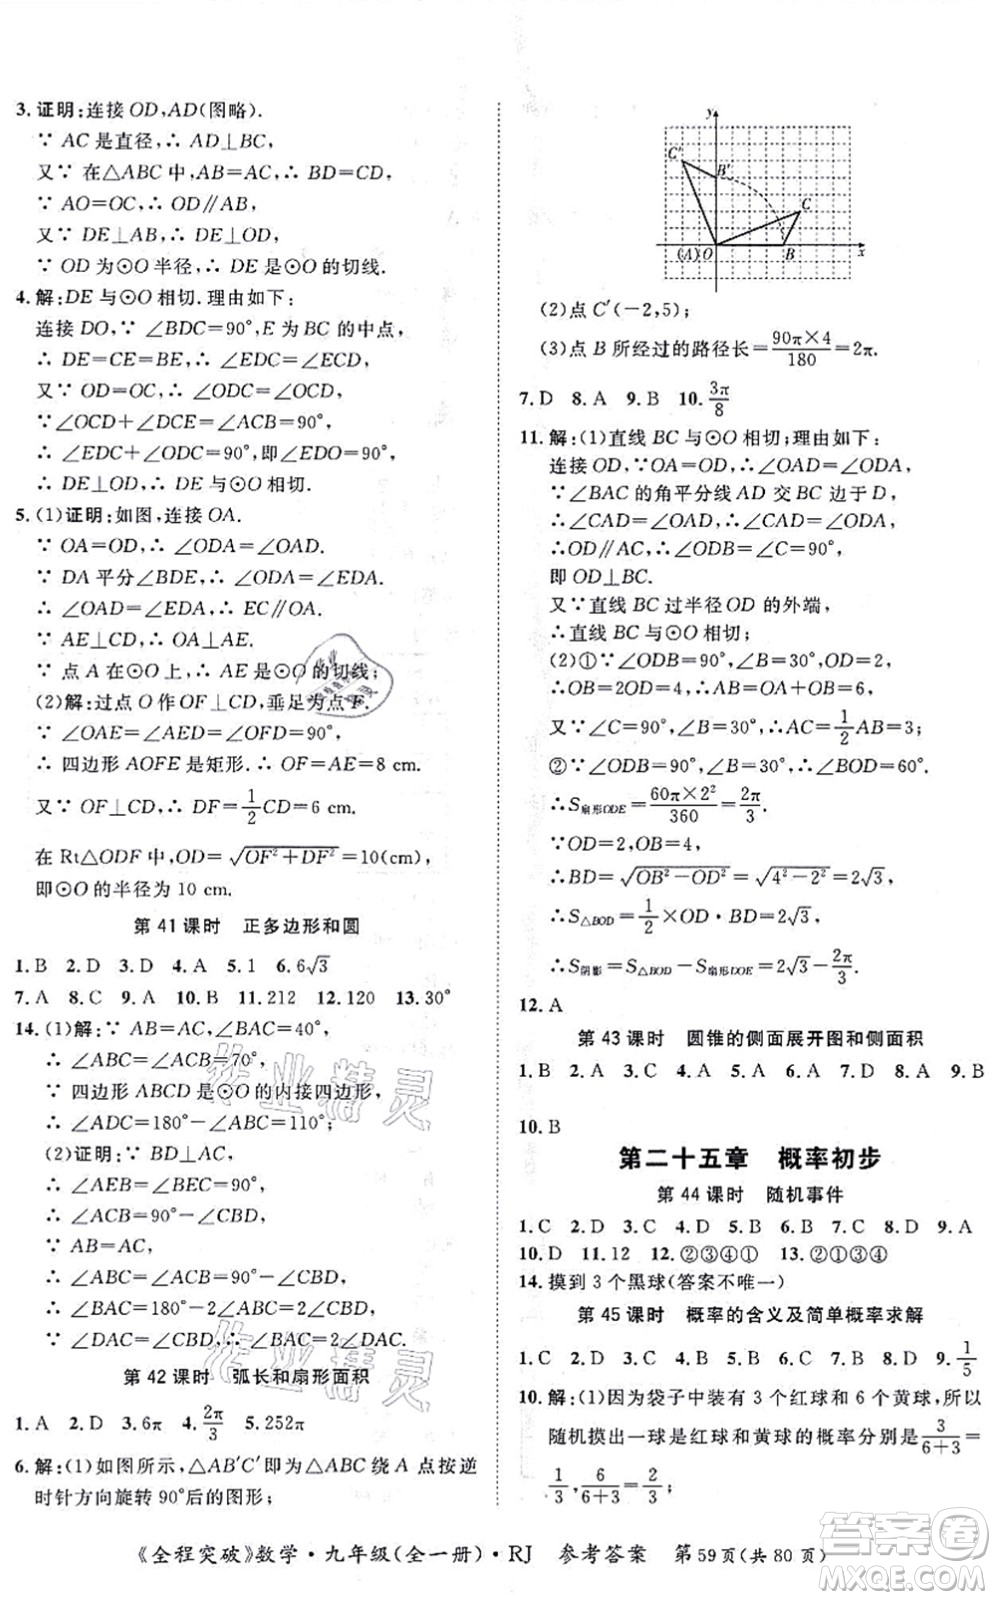 3. 证明:连接 OD,AD(图略).
∵ AC 是直径,∴ AD⊥BC.
又∵ 在△ABC 中,AB=AC,∴ BD=CD.
∵ AO=OC,∴ OD∥AB,
又∵ DE⊥AB,∴ DE⊥OD.
∵ OD 为⊙O 半径,∴ DE 是⊙O 的切线.
4. 解:DE 与⊙O 相切.理由如下:
连接 DO,∵ ∠BDC=90°,E 为 BC 的中点,
∴ DE=CE=BE,∴ ∠EDC=∠ECD,
又∵ OD=OC,∴ ∠ODC=∠OCD,
∵∠OCD+∠DCE=∠ACB=90°,
∴ ∠EDC+∠ODC=90°,即∠EDO=90°,
∴ DE⊥OD,∴ DE 与⊙O 相切.
5. (1)证明:如图,连接 OA.
∵ OA=OD,∴ ∠ODA=∠OAD.
∵ DA 平分∠BDE,∴ ∠ODA=∠EDA,
∴ ∠OAD=∠EDA,∴ EC∥OA.
∵ AE⊥CD,∴ OA⊥AE.
∵ 点 A 在⊙O 上,∴ AE 是⊙O 的切线;
(2)解:过点 O 作 OF⊥CD,垂足为点 F.
∵ ∠OAE=∠AED=∠OFD=90°,
∴ 四边形 AOFE 是矩形.∴ OF=AE=8 cm.
又∵ OF⊥CD,∴ DF=1/2CD=6 cm.
在 Rt△ODF 中,OD=√(OF²+DF²)=10(cm),
即⊙O 的半径为 10 cm.
第 41 课时 正多边形和圆
1. B 2. D 3. D 4. A 5. 1 6. 6√3
7. A 8. C 9. A 10. B 11. 212 12. 120 13. 30°
14. (1)解:∵ AB=AC,∠BAC=40°,
∴ ∠ABC=∠ACB=70°,
∵ 四边形 ABCD 是⊙O 的内接四边形,
∴ ∠ADC=180°-∠ABC=110°,
(2)证明:∵ BD⊥AC,
∴ ∠AEB=∠BEC=90°,
∴ ∠ACB=90°-∠CBD,
∵ AB=AC,
∴ ∠ABC=∠ACB=90°-∠CBD,
∴ ∠BAC=180°-2∠ABC=2∠CBD,
∵ ∠DAC=∠CBD,∴ ∠BAC=2∠DAC.
第 42 课时 弧长和扇形面积
1. A 2. D 3. 6π 4. 2π/3 5. 252π
6. 解:(1)如图所示,△AB′C′即为△ABC 绕 A 点按逆
时针方向旋转 90°后的图形;
y
C′
B′
C
(A) O B x
(2)点 C′(-2,5);
(3)点 B 所经过的路径长=90π×4/180=2π.
7. D 8. A 9. B 10. 3π/8
11. 解:(1)直线 BC 与⊙O 相切;理由如下:
连接 OD,∵OA=OD,∴∠OAD=∠ODA,
∵∠BAC 的角平分线 AD 交 BC 边于 D,
∴∠CAD=∠OAD,∴∠CAD=∠ODA,
∴OD∥AC,∴∠ODB=∠C=90°,
即 OD⊥BC.
又∵直线 BC 过半径 OD 的外端,
∴直线 BC 与⊙O 相切;
(2)①∵∠ODB=90°,∠B=30°,OD=2,
∴OB=4,∴AB=6,
又∵∠C=90°,∠B=30°,∴AC=1/2AB=3;
②∵∠ODB=90°,∠B=30°,∴∠BOD=60°.
∴S扇形ODE=60π×2²/360=2π/3.
∵OD=2,OB=4,
∴BD=√(OB²-OD²)=√(4²-2²)=2√3,
∴S△BOD=1/2 OD·BD=2√3,
∴S阴影=S△BOD-S扇形DOE=2√3-2π/3.
12. A
第 43 课时 圆锥的侧面展开图和侧面积
1. B 2. C 3. A 4. A 5. A 6. A 7. D 8. A 9. B
10. B
第二十五章 概率初步
第 44 课时 随机事件
1. C 2. D 3. C 4. D 5. D 6. B 7. D 8. D 9. A
10. D 11. 12 12. ②③④① 13. ②①③④
14. 摸到 3 个黑球(答案不唯一)
第 45 课时 概率的含义及简单概率求解
1. C 2. D 3. C 4. A 5. B 6. A 7. B 8. C 9. 1/5
10. 解:(1)因为袋子中装有 3 个红球和 6 个黄球,所以
随机摸出一球是红球和黄球的概率分别为3/(6+3)=
1/3,6/(6+3)=2/3;
《全程突破》数学·九年级(全一册)·RJ 参考答案 第 59 页(共 80 页)
作业精灵
作业精灵
答案圈
MXQE.COM